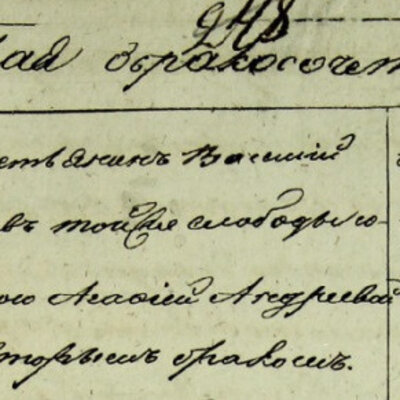 248
ая о бракосочет
стьянинъ Василій
въ той же слободы ю-
ою Агафіей Андреевой
вторымъ бракомъ.